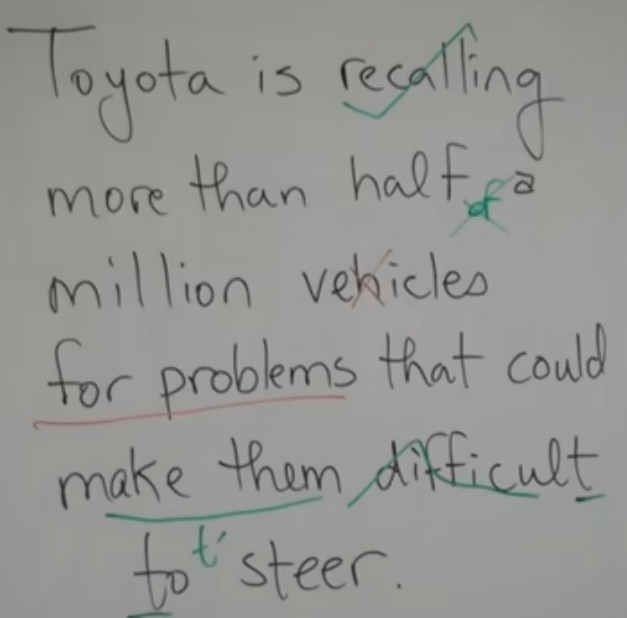 Toyota is recalling
more than half of a
million vehicles
for problems that could
make them difficult
to t' steer.